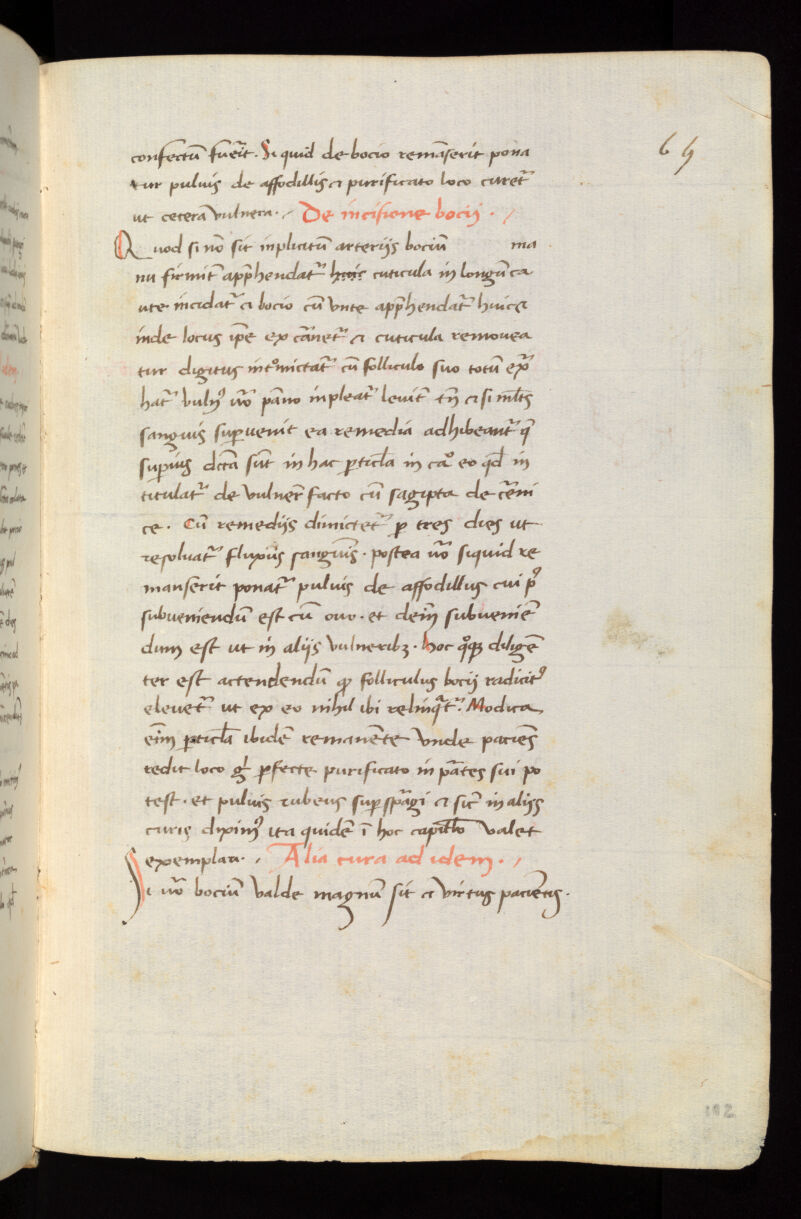 65
confectũ fuẽit. Si quid de bocio remãserit pona
tur puluis de affodillis & purificato loco curet᷑
ut cetera vulnera. De incisione bocij.
Quod si nõ sit inplicitũ arterijs bociũ ma
nu firmit᷑ app̃hendat᷑ cuticula in longũ ca
ute incidat᷑ & bocio cũ vnte app̃hendat᷑ huic&
inde locus ip̃e ex cãnet᷑ & cuticula remouea
tur digitus int᷑mictat᷑ cũ folliculo suo totũ ex᷑
hat᷑ vuln᷒ u᷑o pãno inpleat᷑ leuit᷑ tñ & si ml̃ts
sanguis sup̱uenit ea remedia adhibeant᷑ q̃
sup̱ius dcã sũt in hac p̱ticl̃a in cã eo qd̃ in
titulat᷑ de vulner̃ facto cũ sagipta de c̃eui
ce. Cũ remedijs dimictet᷑ p̱ tres dies ut
resoluat᷑ fluxus sanguĩs. postea u᷑o siquid re
manserit ponat᷑ puluis de affodillus cui p᷒
subueniendũ est cũ ouo. et deiñ subueniẽ
dum est ut in alijs vulneribꝫ. hoc q̊qꝫ diligẽ
ter est actendendũ ꝙ folliculus bocij radicit᷒
eleuet᷑ ut ex eo nihil ibi relinq̃t᷑. Modica
eĩm p̱ticl̃a ibidẽ remanẽte vnde paciẽs
redit loco g̃ p̱fecte purificato in pãtes sui po
test. et puluis rubeus sup̱ spãgi & sic̃ in alijs
curis diximᷤ ita quidẽ ĩ hoc capitl̃o valet
exemplari. Alia cura ad idem.
Si u᷑o bociũ valde magnũ sit & virtus paciẽtis.
102